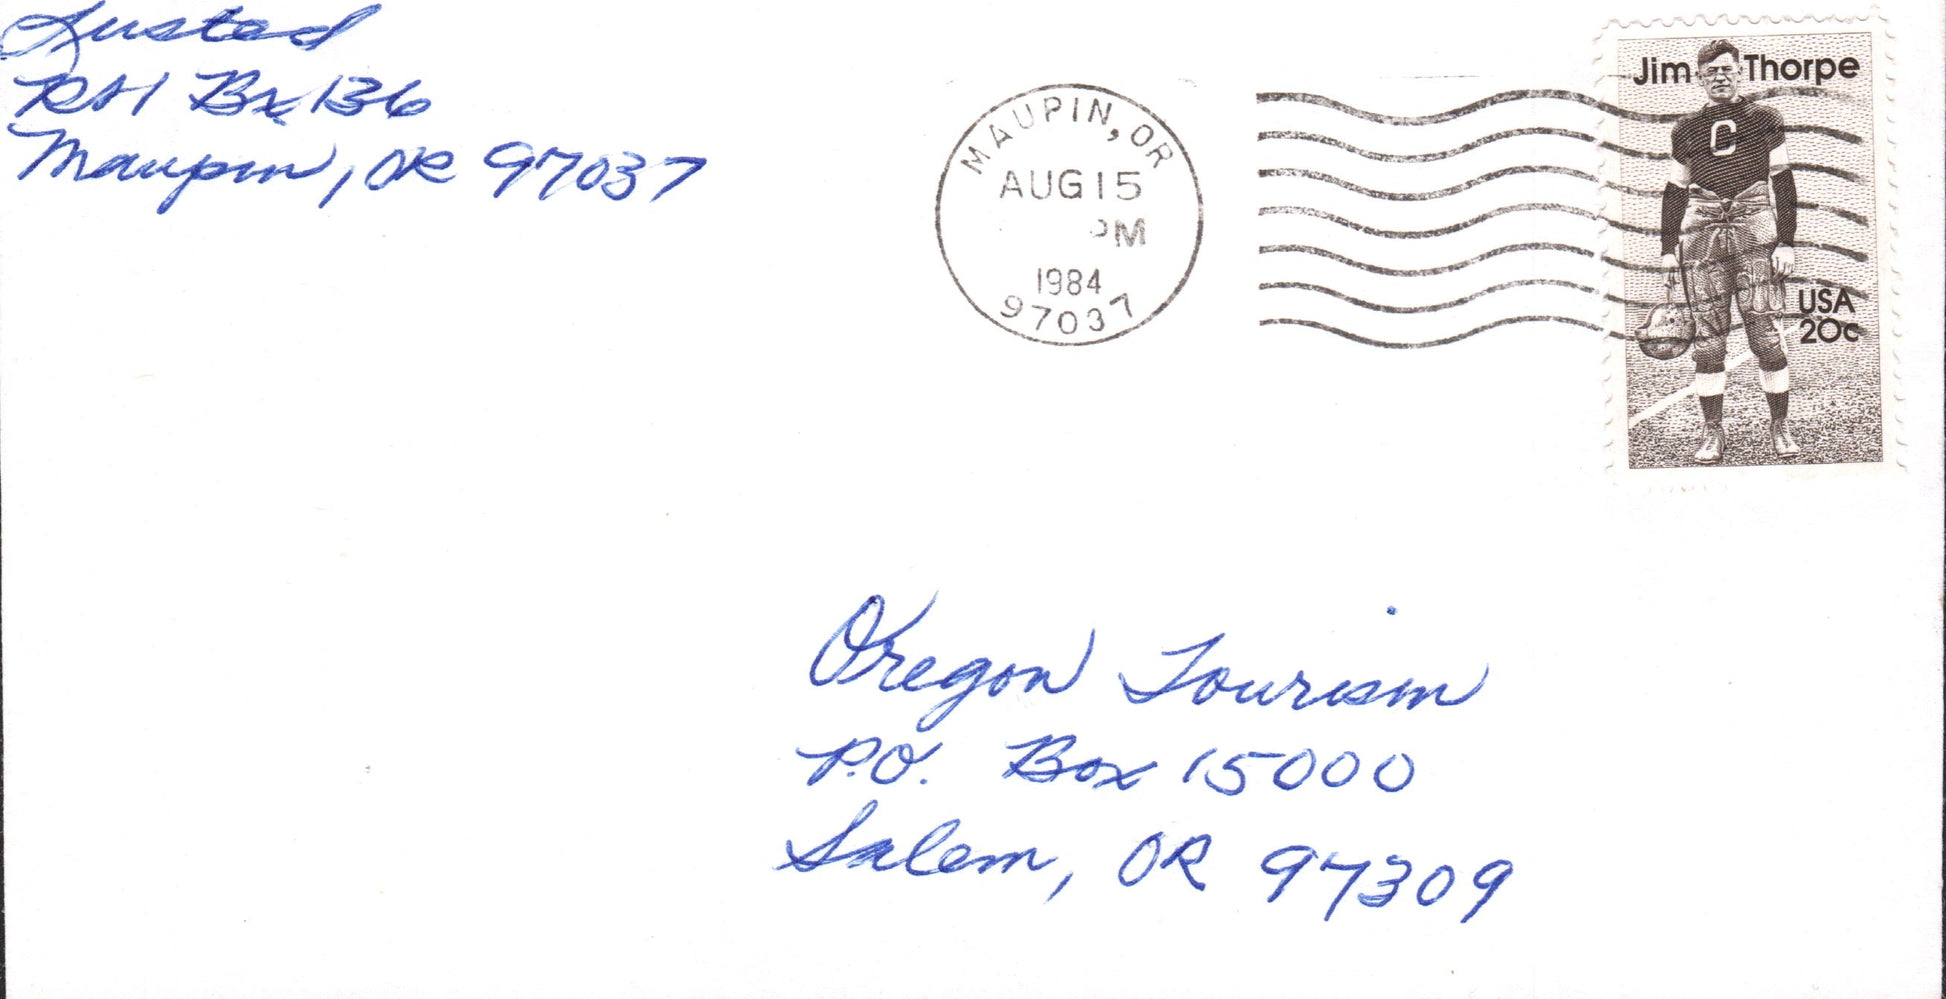 Lustad
Rt 1 Bx 136
Maupin, OR 97037
MAUPIN, OR
AUG 15
PM
1984
97037
Jim Thorpe
C
USA
20c
Oregon Tourism
P.O. Box 15000
Salem, OR 97309